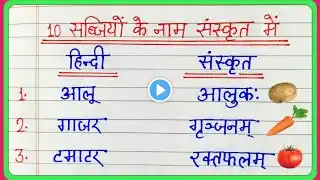 10 सब्जियों के नाम संस्कृत में
हिन्दी संस्कृत
1. आलू आलुकः
2. गाजर गृञ्जनम्
3. टमाटर रक्तफलम्